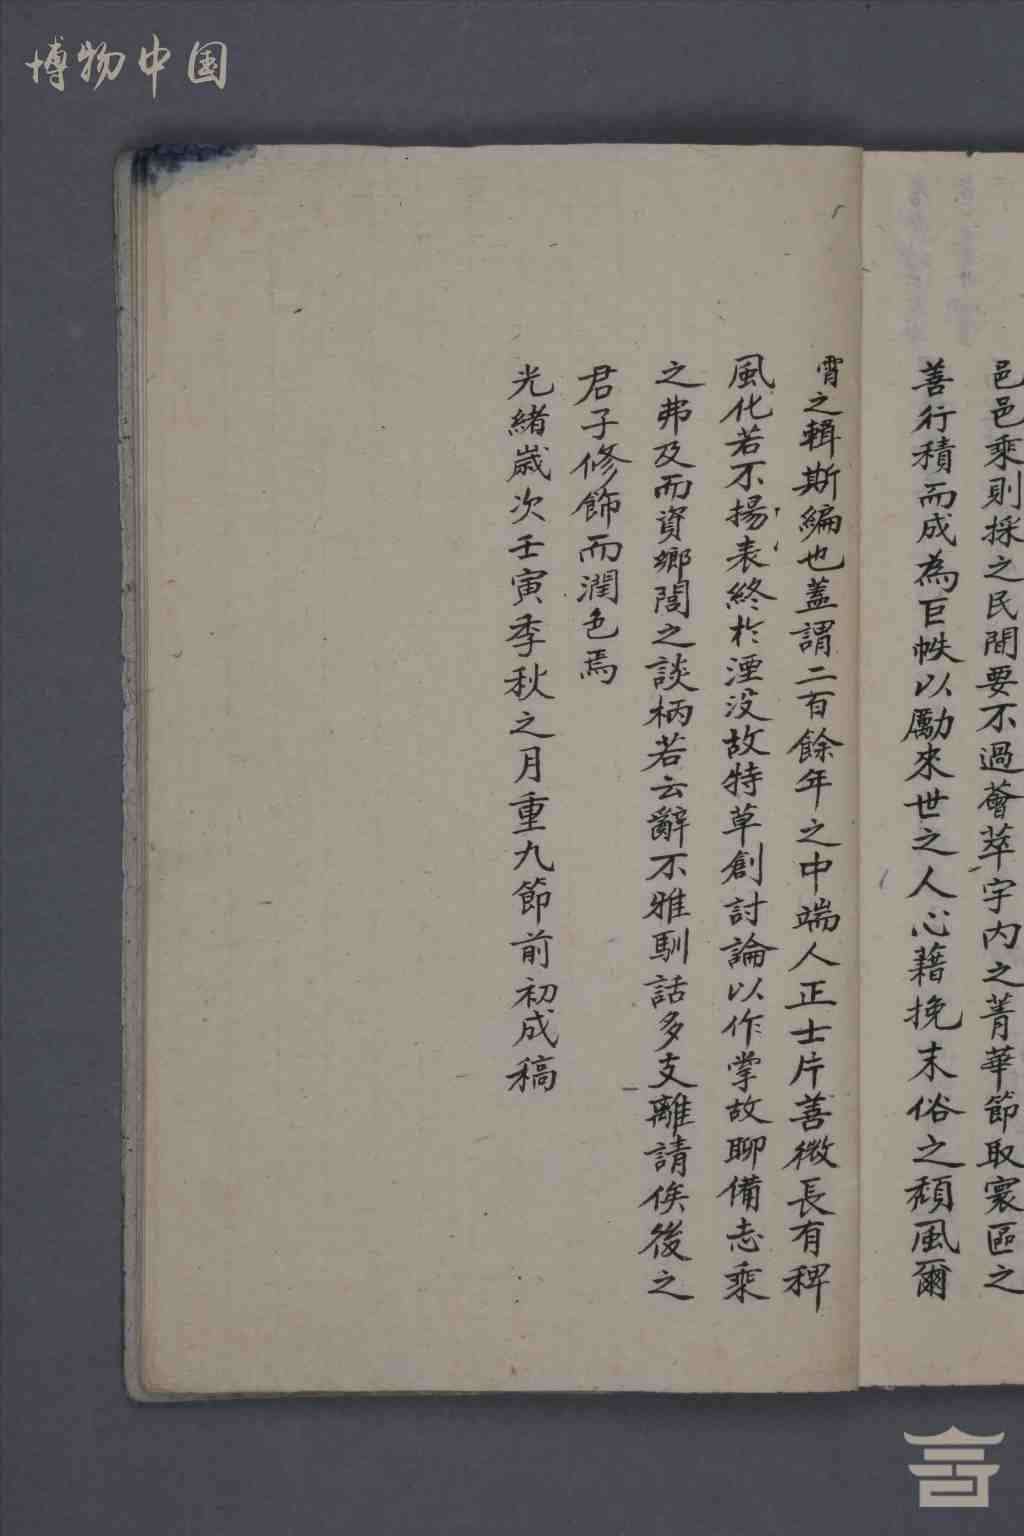 博物中国
邑邑乘則採之民間要不過薈萃宇内之菁華節取寰區之
善行積而成為巨帙以勵來世之人心藉挽末俗之頹風爾
霄之輯斯編也蓋謂二百餘年之中端人正士片善微長有稗
風化若不揚表終於湮没故特草創討論以作掌故聊備志乘
之弗及而資鄉閭之談柄若云辭不雅馴話多支離請俟後之
君子修飾而潤色焉
光緒歲次壬寅季秋之月重九節前初成稿